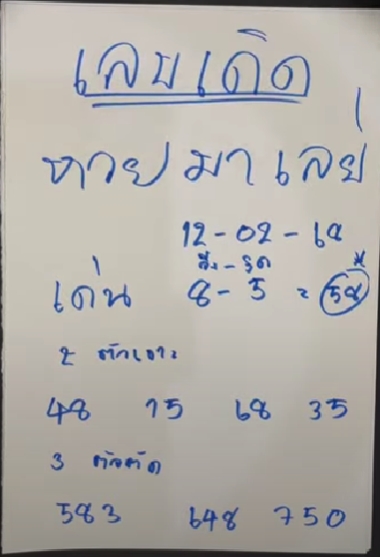 เลขเด็ด
หวยมาเลย์
12-02-69
ถึง-รูด
เด่น 8-5 = 58 *
2 ตัวเจาะ
48 75 68 35
3 ตัวตัด
583 648 750